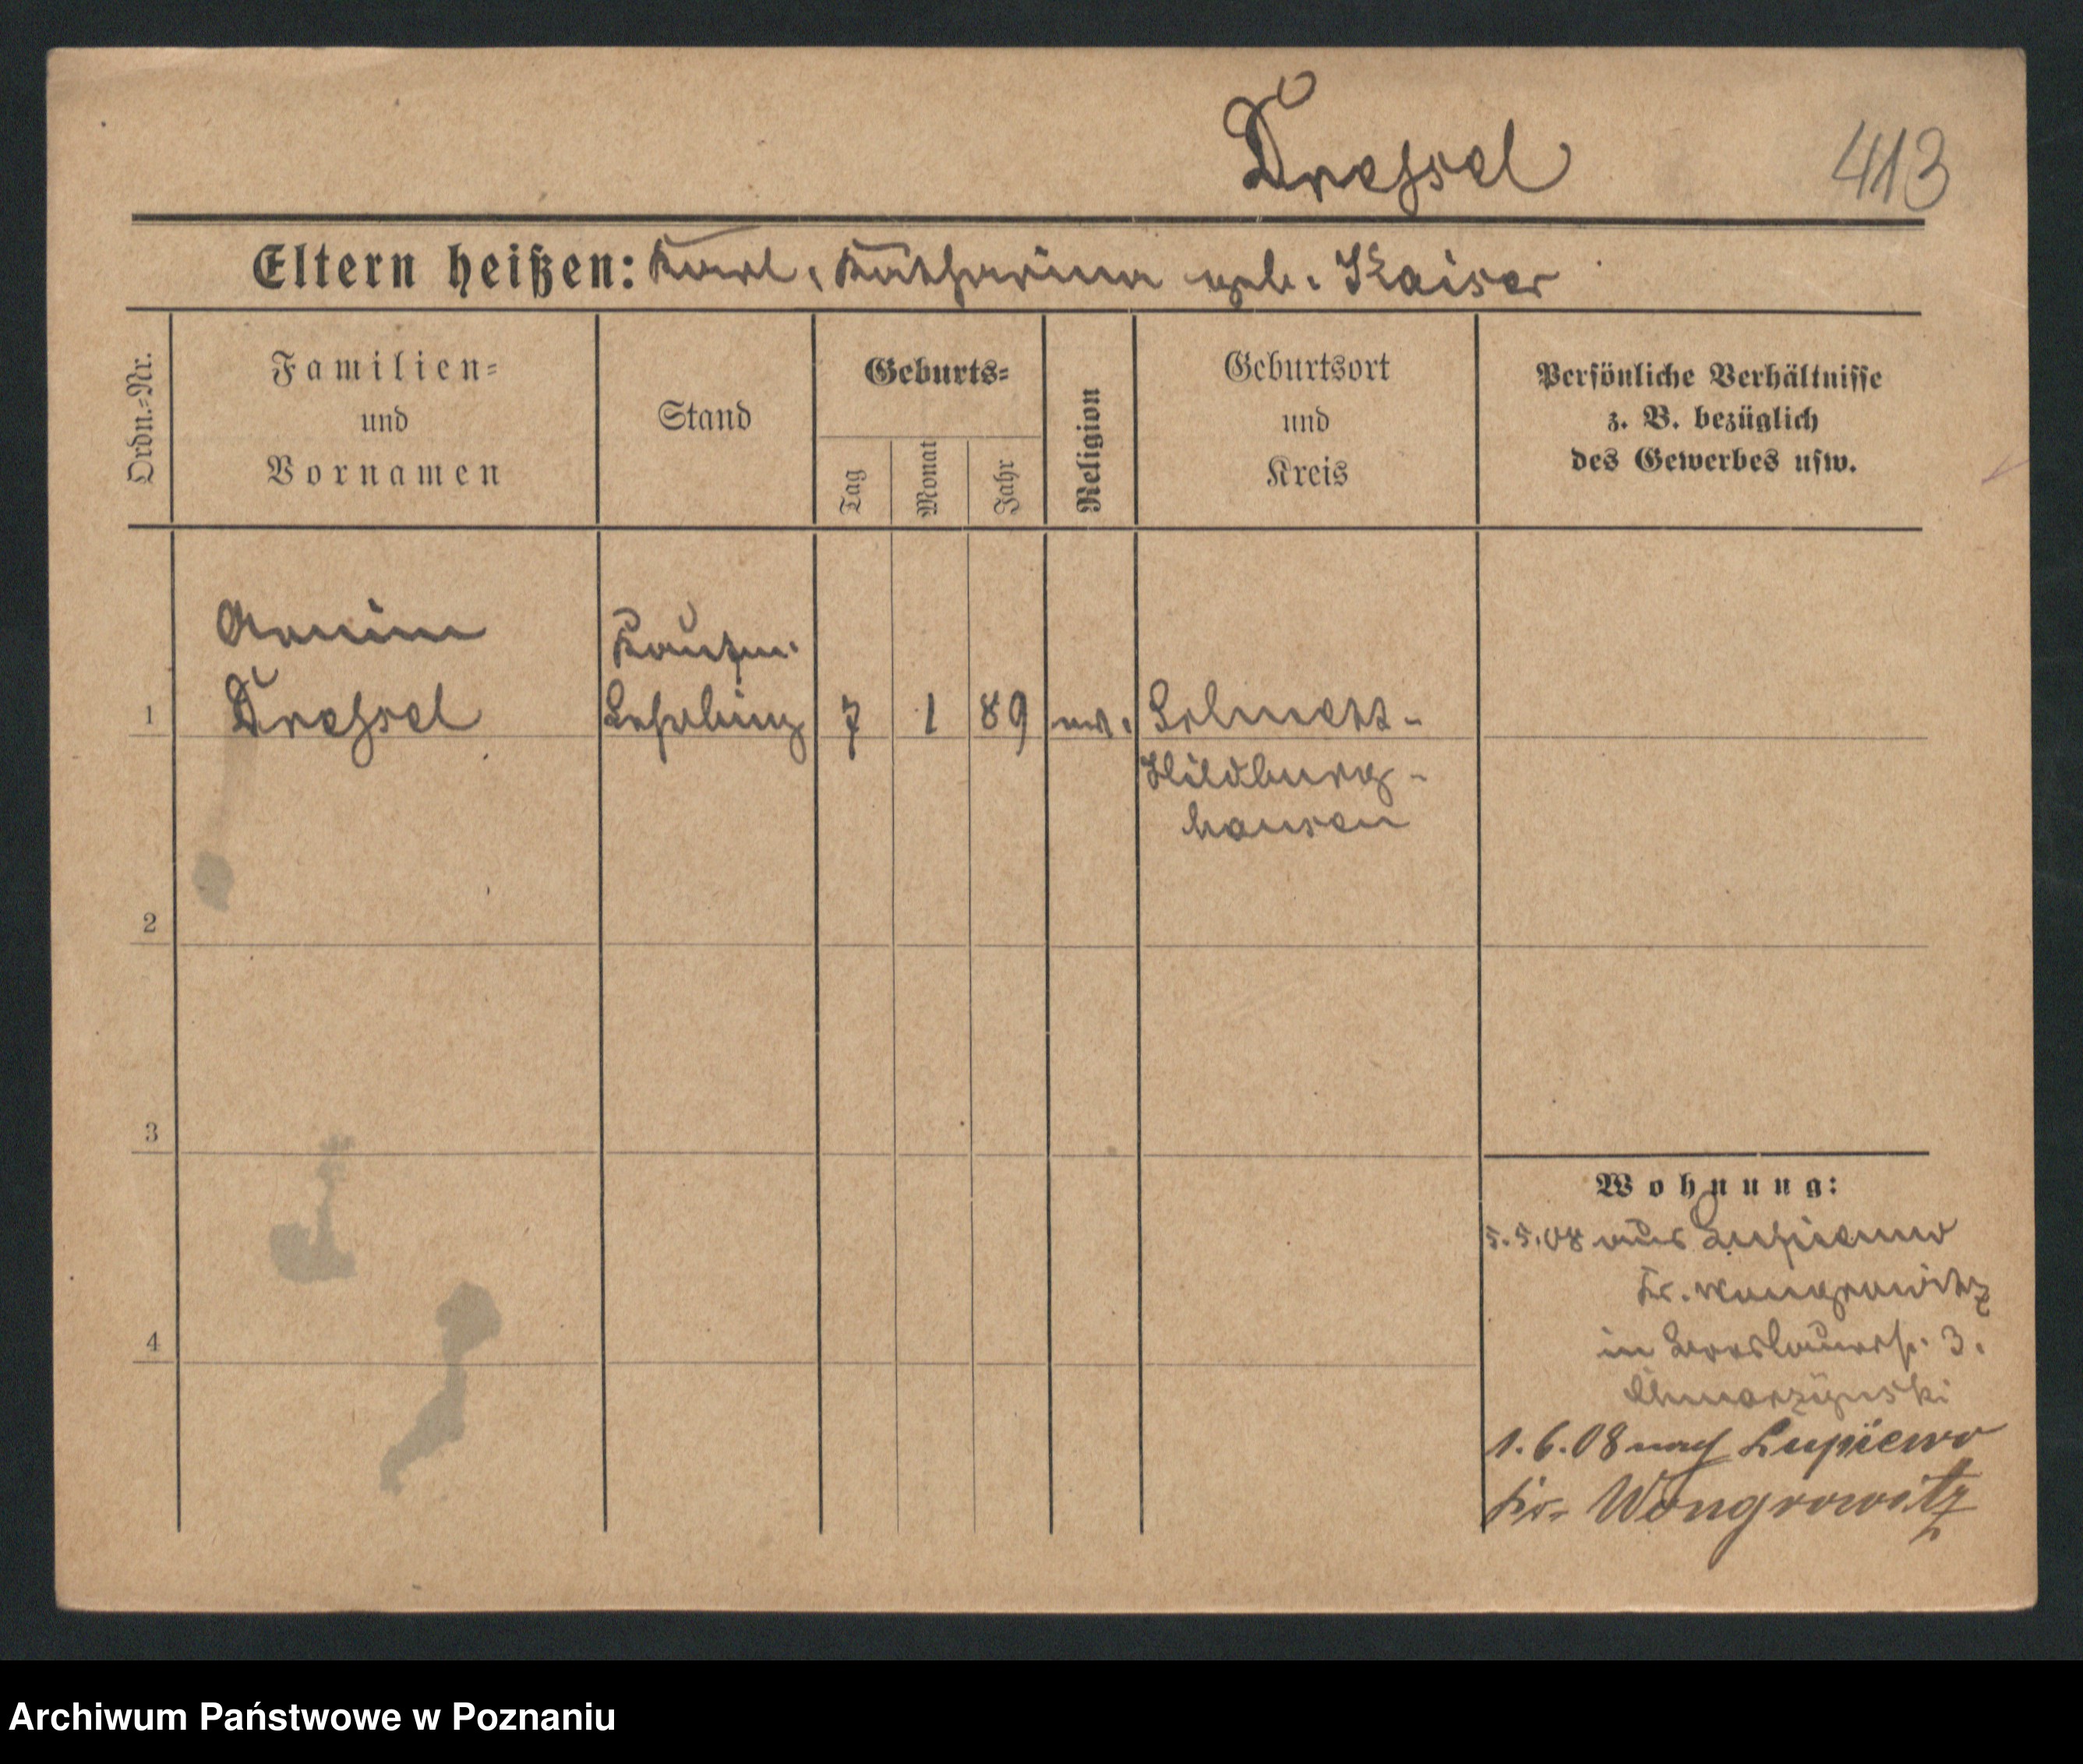 Dressel
413
Eltern heißen: Karl, Katharina geb. Kaiser
Ordn.-Nr.
Familien-
und
Vornamen
Stand
Geburts-
Tag
Monat
Jahr
Religion
Geburtsort
und
Kreis
Persönliche Verhältnisse
z. B. bezüglich
des Gewerbes usw.
Armin
Kaufm.
1 Dressel Lehrling 7 1 89 ev.
Hildburg-
hausen
2
3
4
Wohnung:
5.5.08 aus
Kr. Wongrowitz
in Breslauerstr. 3.
1.6.08 nach Lupiewo
Kr. Wongrowitz
Archiwum Państwowe w Poznaniu